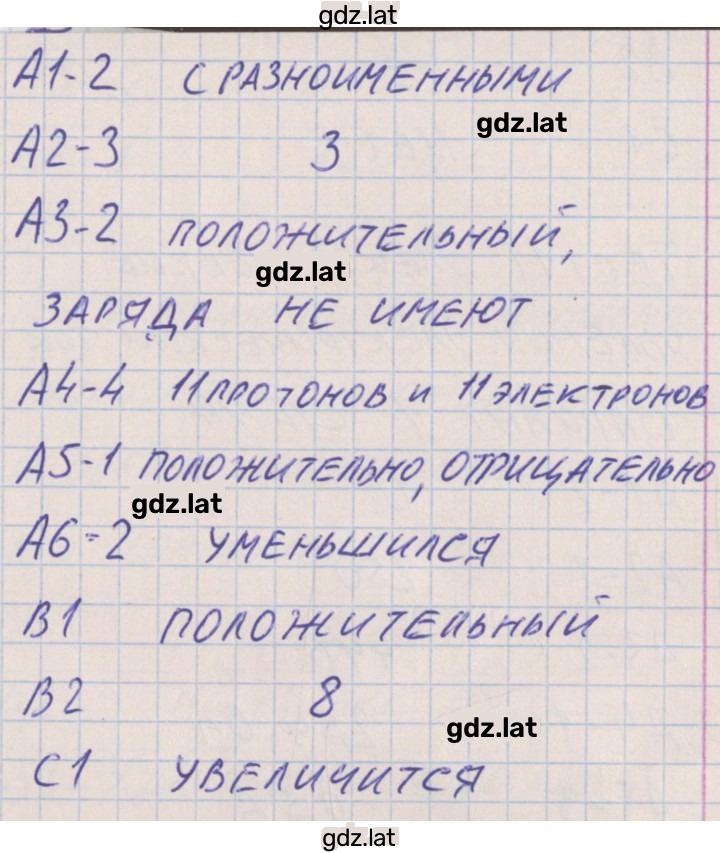 gdz.lat
А1-2 С РАЗНОИМЕННЫМИ
gdz.lat
А2-3 3
А3-2 ПОЛОЖИТЕЛЬНЫЙ,
gdz.lat
ЗАРЯДА НЕ ИМЕЮТ
А4-4 11 ПРОТОНОВ И 11 ЭЛЕКТРОНОВ
А5-1 ПОЛОЖИТЕЛЬНО, ОТРИЦАТЕЛЬНО
gdz.lat
А6-2 УМЕНЬШИЛСЯ
В1 ПОЛОЖИТЕЛЬНЫЙ
В2 8
gdz.lat
С1 УВЕЛИЧИТСЯ
gdz.lat